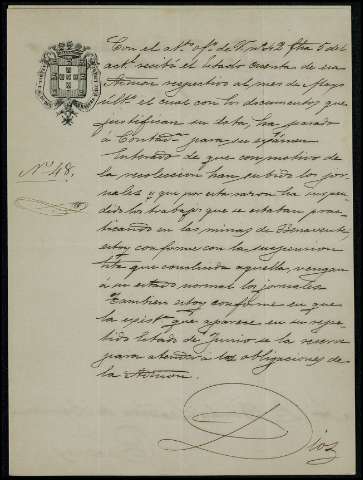 Con el at.º of.º de V. nº 42 fha 5 del
act.¹ recibí el estado cuenta de esa
Admon respectivo al mes de Mayo
ult.º el cual con los documentos que
justifican su data, ha pasado
á Contad.ª para su exámen
Enterado de que con motivo de
la recoleccion han subido los jor-
nales y que por esta razon ha suspen-
dido los trabajos que se estaban prac-
ticando en las minas de Benavente,
estoy conforme con la suspension
hta que concluida aquella, vengan
á su estado normal los jornales
Tambien estoy conforme en que
la exist.ª que aparece en su repe-
tido Estado de Junio se la reserve
para atender á las obligaciones de
la Admon.
Nº 48.
Dios